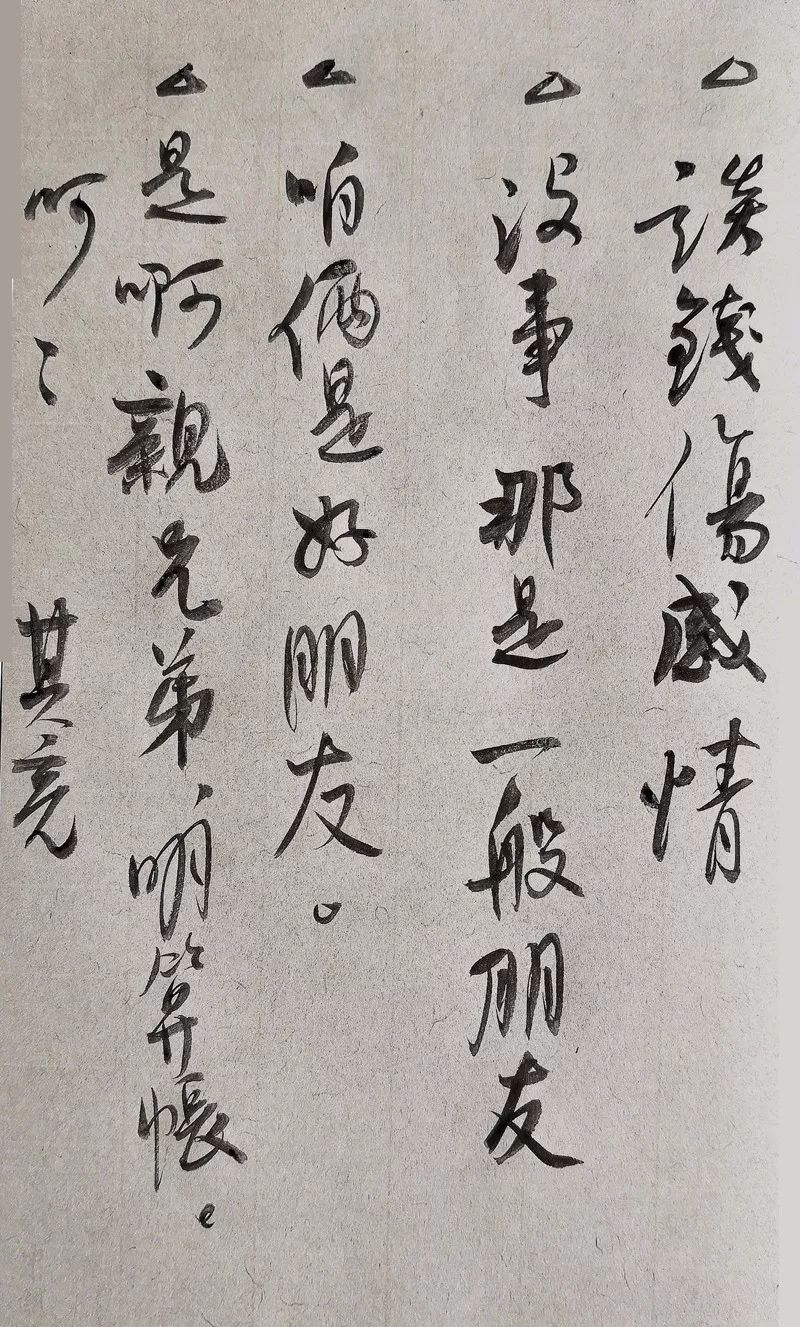 △談錢傷感情
△没事那是一般朋友
△咱倆是好朋友。
△是啊親兄弟、明算帳。
呵〻 其亮